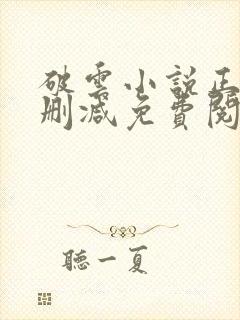 破雲小說正
刪減免費閱
聽一夏